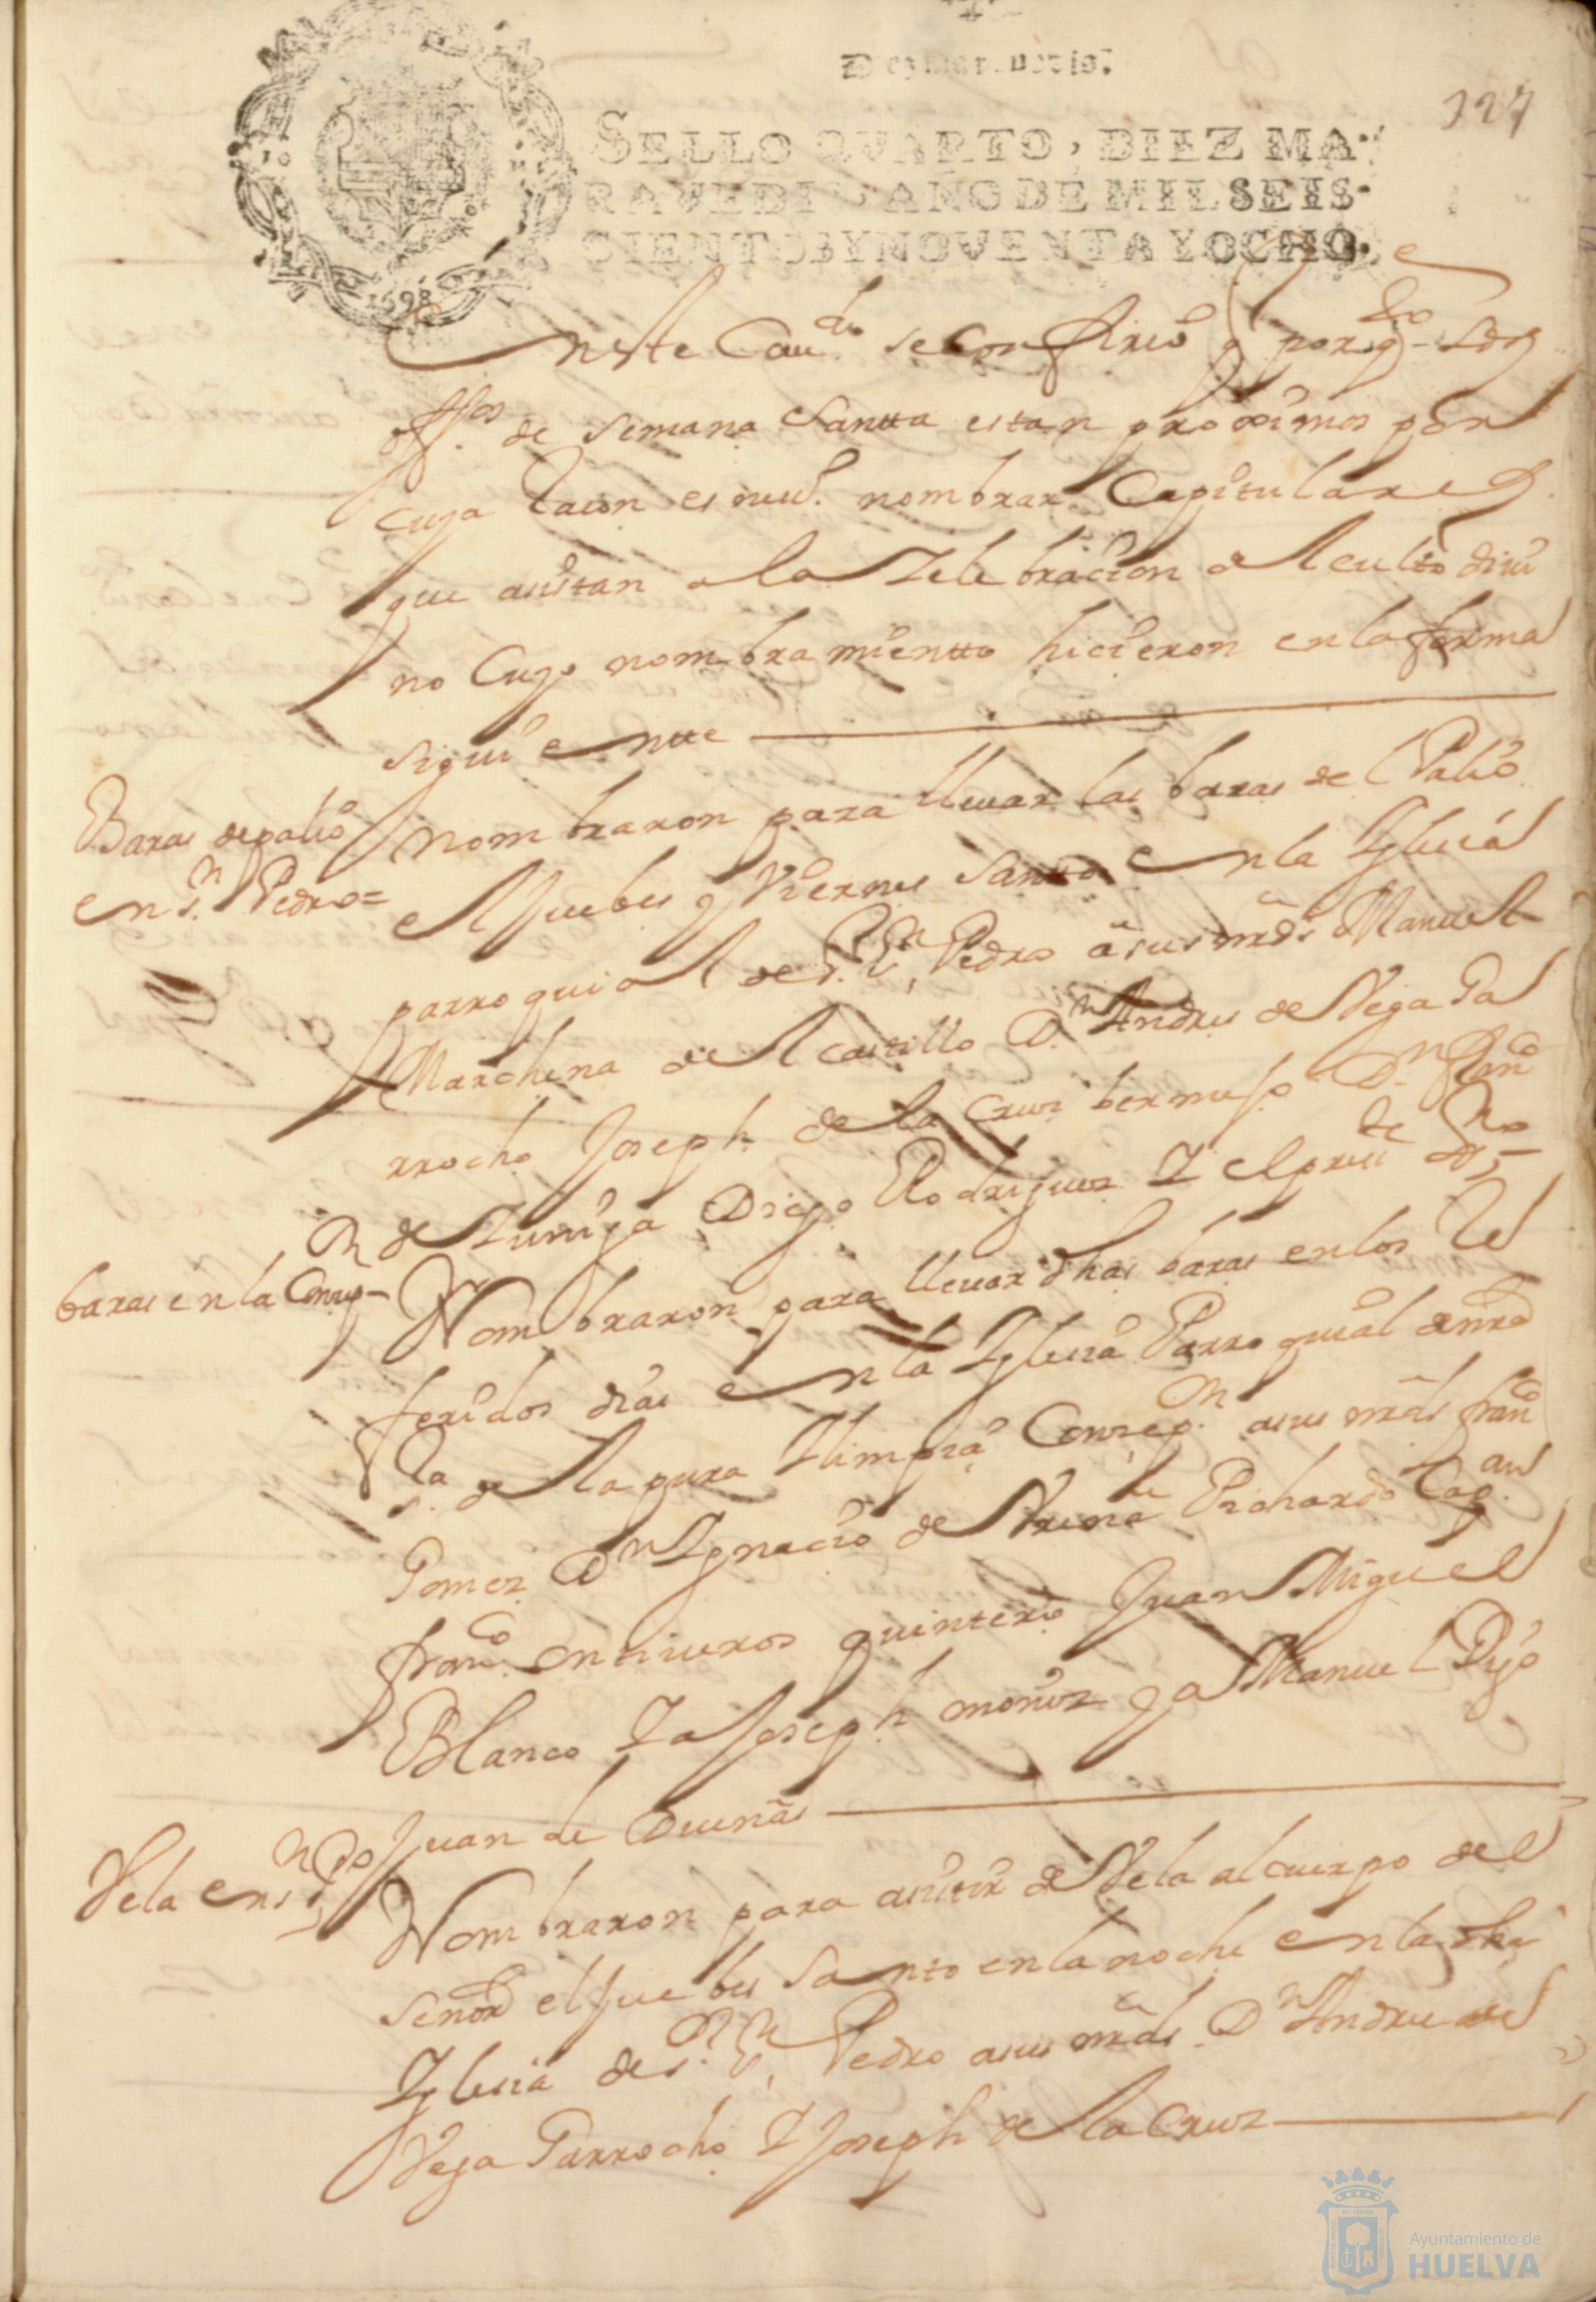 Diez marauedis.
127
SELLO QVARTO, DIEZ MA-
RAVEDIS, AÑO DE MIL SEIS-
CIENTOS Y NOVENTA Y OCHO.
1698
En este Caudo se confirio q por qto los
offos de semana Santta estan proximos por
cuya Raçon es nesesº nombrar Capitulares
que asistan a la Zelebracion del culto diui
no Cuyo nombramientto hicieron en la forma
siguientte
Baras de palio
en sn Pedro=
Nombraron para lleuar las baras del Palio
el Juebes y Viernes Santto en la Iglesia
parroquial de sr sn Pedro a sus mrds Manuel
Marchena del Castillo Dn Andres de Vega Ga
rrocho Joseph de la Cruz bermejo Dn Franco
de Zuniga Diego Rodriguez Y el presте
baras en la Concepn
Nombraron para lleuar dhas baras en los Re
feridos dias en la Iglesia Parroquial de nra
sra de la pura Y limpia Concepn a sus mrds Franco
Gomez Dn Ignacio de Pichardo Capan
Franco ontiueros quintero Juan Miguel
Blanco Y a Joseph moñiz y a Manuel
Juan de Duenas
Vela en sn Po
Nombraron para asistir de Vela al cuerpo del
señor el Juebes Santo en la noche en la dha
Iglesia de sr sn Pedro a sus mrds Dn Andres de
Vega Garrocho Y Joseph de la Cruz
Ayuntamiento de
HUELVA